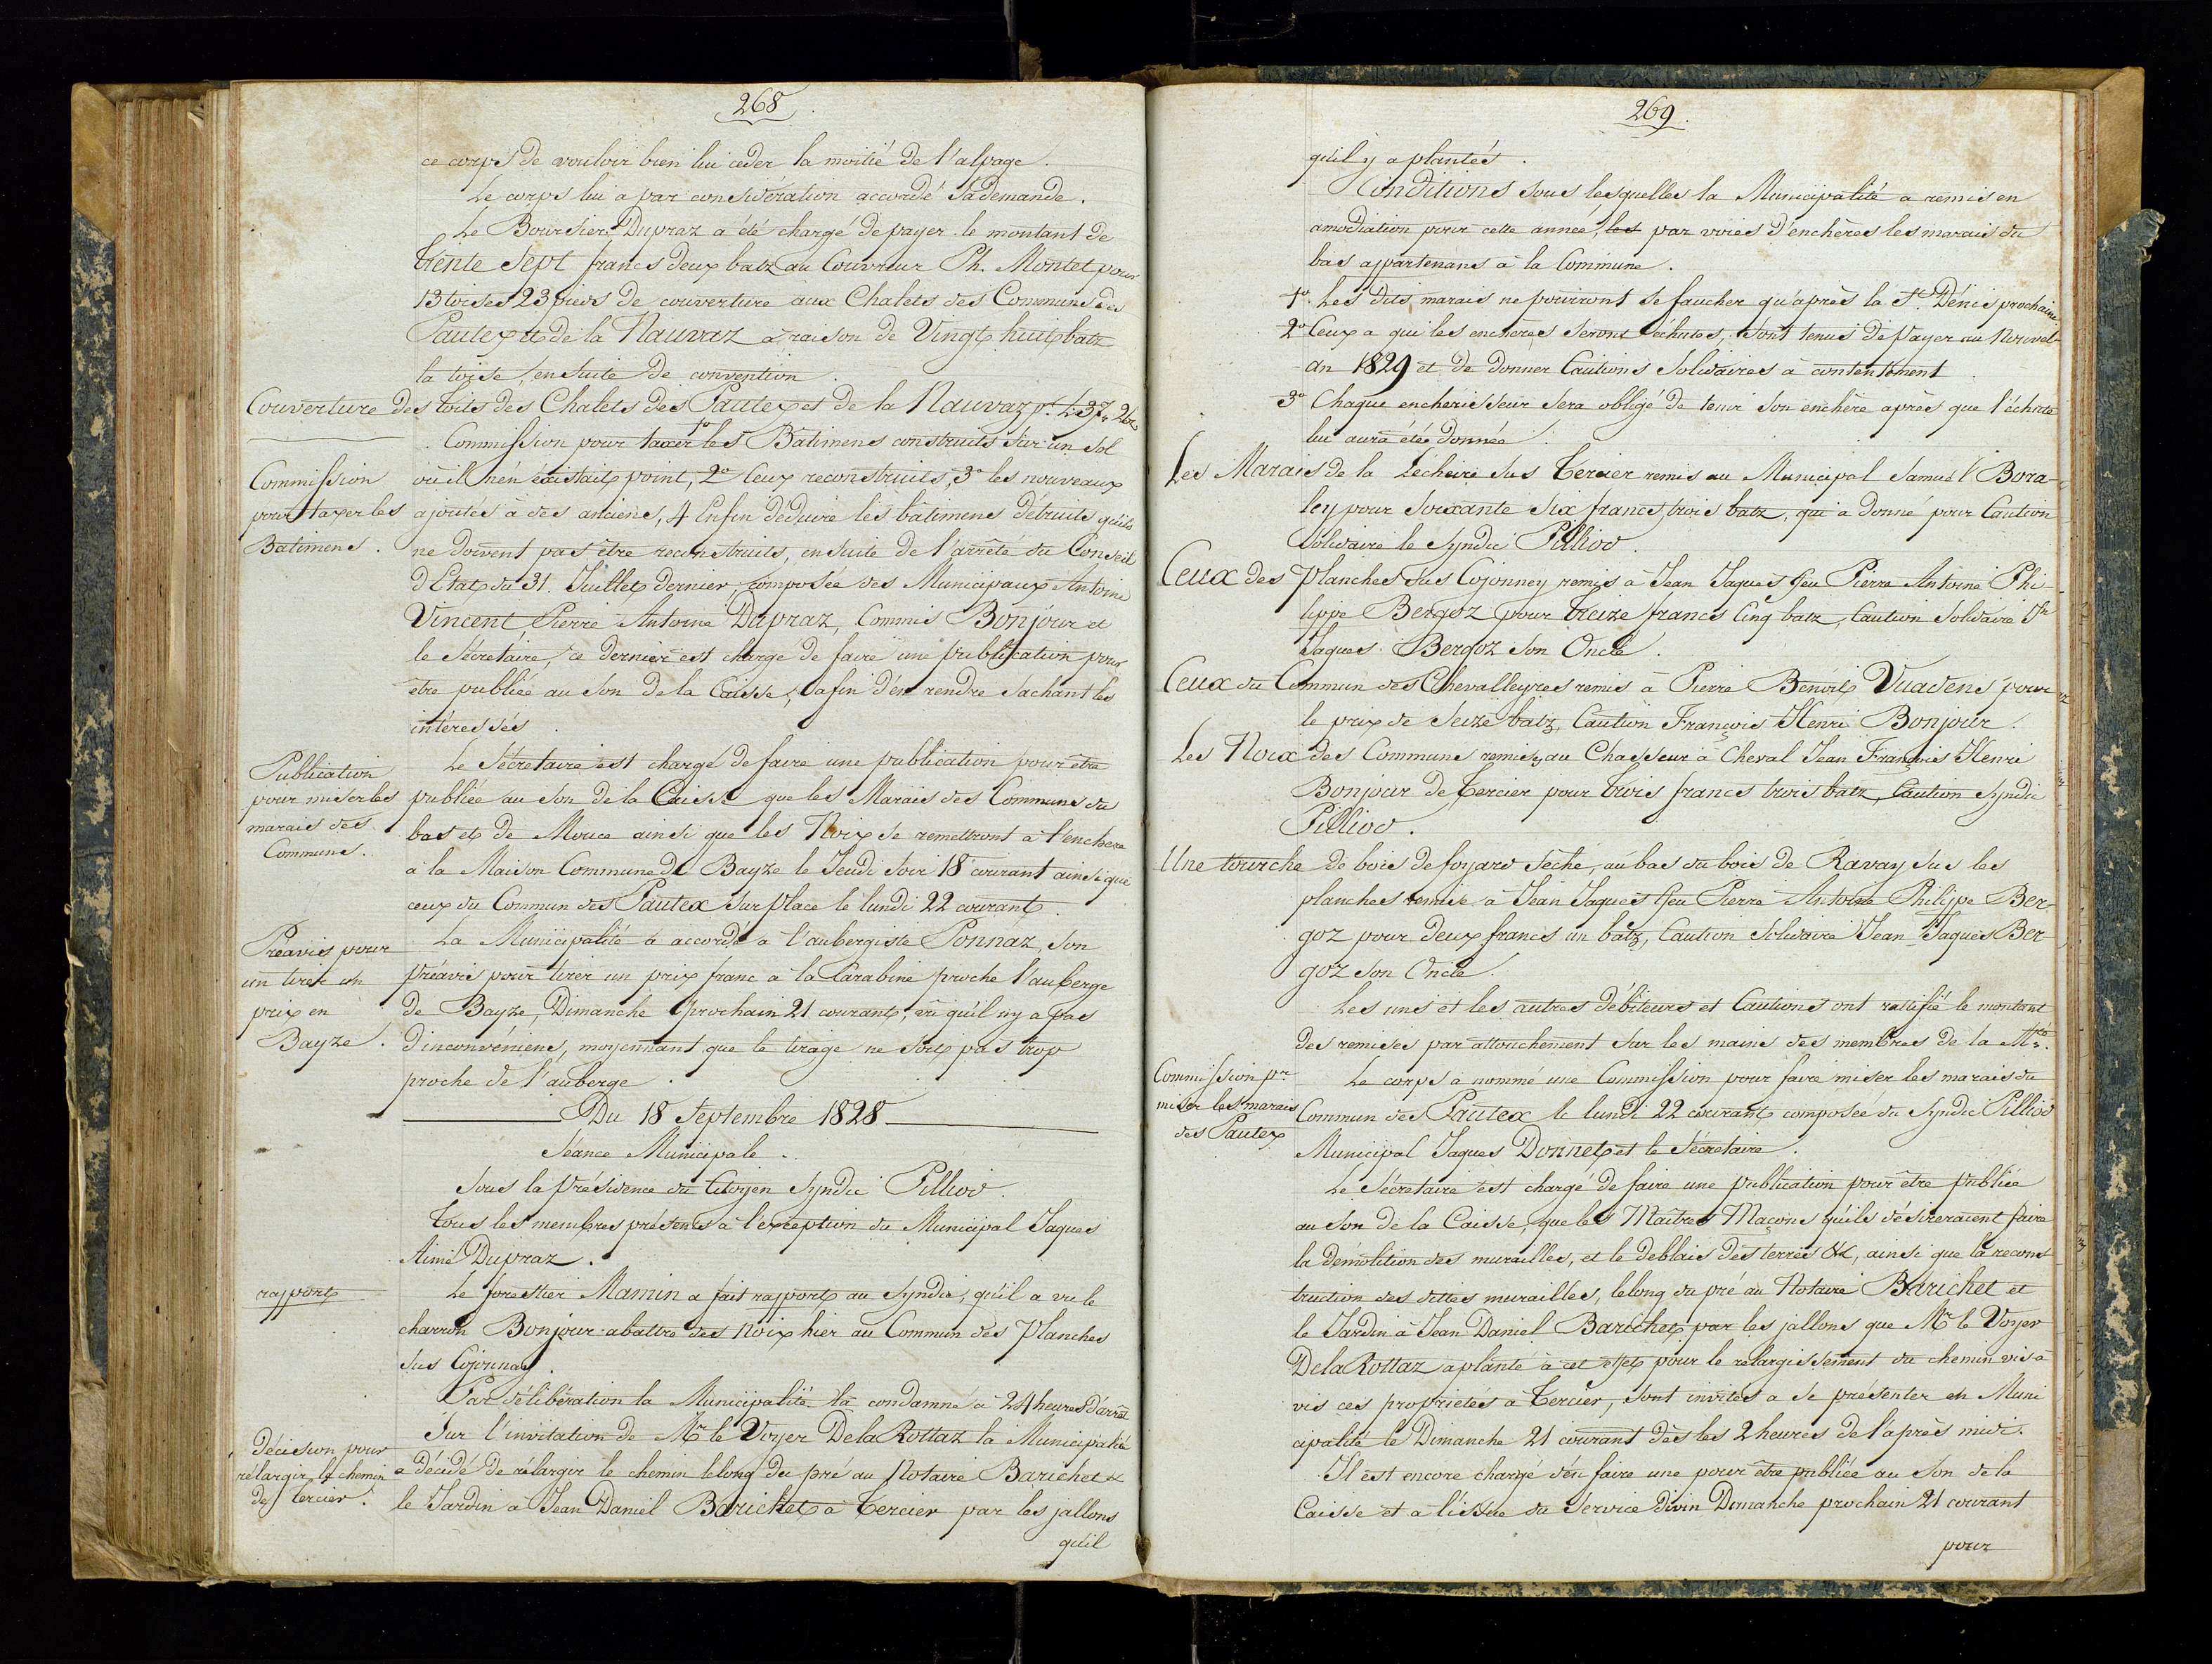 268
ce corps de vouloir bien lui ceder la moitié de l'alpage.
Le corps lui a par considération accordé sa demande.
Le Boursier Dupraz a été chargé de payer le montant de
trente sept francs deux batz au Couvreur Ph. Montet pour
13 toises 23 pieds de couverture aux Chalets des Communs des
Pautex et de la Nauvaz a raison de Vingt huit batz
la toise, ensuite de convention.
Couverture des toits des Chalets des Pautex et de la Nauvaz pr. L. 37,, 2 bz
Commission pour taxer 1o les Bâtimens construits sur un sol
Commission
pour taxer les
Batimens.
où il n'en existait point, 2o Ceux reconstruits, 3o les nouveaux
ajoutés à des anciens, 4 Enfin déduire les bâtimens détruits qu'ils
ne doivent pas être reconstruits, ensuite de l'arrêté du Conseil
d'Etat du 31. Juillet dernier, composée des Municipaux Antoine
Vincent Pierre Antoine Dupraz, Commis Bonjour et
le Sécretaire, ce dernier est chargé de faire une publication pour
être publiée au son de la Caisse, afin d'en rendre sachant les
intéressés.
Publication
pour miser les
marais des
Communs.
Le Sécretaire est chargé de faire une publication pour être
publiée au son de la Caisse que les Marais des Communs du
bas et de Mouce ainsi que les Noix se remettront à l'enchere
à la Maison Commune de Bayze le Jeudi soir 18 courant ainsi que
ceux du Commun des Pautex sur place le lundi 22 courant.
Préavis pour
un tirer un
prix en
Bayze.
La Municipalité a accordé à l'aubergiste Ponnaz, son
préavis pour tirer un prix franc a la Carabine proche l'auberge
de Bayze, Dimanche prochain 21 courant, vu qu'il n'y a pas
d'inconvéniens, moyennant que le tirage ne soit pas trop
proche de l'auberge.
Du 18 Septembre 1828
Séance Municipale.
Sous la présidence du Citoyen Syndic Pilliod.
Tous les membres présents à l'exception du Municipal Jaques
Aimé Dupraz.
rapport
Le forestier Mamin a fait rapport au Syndic, qu'il a vu le
charron Bonjour abattre des noix hier au Commun des Planches
sus Cojonnay.
Par délibération la Municipalité l'a condamné à 24 heures d'arrêt
Décision pour
rélargir le chemin
de Tercier.
Sur l'invitation de Mr le Voyer DelaRottaz la Municipalité
a décidé de rélargir le chemin le long du pré au Notaire Barichet &
le Jardin à Jean Daniel Barichet à Tercier par les jallons
qu'il
269.
qu'il y a plantés.
Conditions sous lesquelles la Municipalité a remis en
amodiation pour cette année, les par voies d'enchères les marais du
bas appartenans à la Commune.
1o Les dits marais ne pourront se faucher qu'après la St. Dénis prochaine
2o Ceux a qui les enchères seront échutes, sont tenus de payer au Nouvel-
an 1829 et de donner Cautions Solidaires à contentement.
3o Chaque enchérisseur sera obligé de tenir son enchère après que l'échute
lui aura été donnée.
Les Marais de la Léchére sus Tercier remis au Municipal Samuel Bora-
ley pour soixante six francs trois batz, qui a donné pour Caution
Solidaire le Syndic Pilliod.
Ceux des Planches sus Cojonney remis à Jean Jaques feu Pierre Antoine Phi-
lippe Bergoz pour treize francs cinq batz, Caution Solidaire Jn
Jaques Bergoz son Oncle.
Ceux du Commun des Chevalleyres remis à Pierre Benoit Vuadens pour
le prix de seize batz, Caution François Henri Bonjour.
Les Noix des Communs remises au Chasseur à Cheval Jean François Henri
Bonjour de Tercier pour trois francs trois batz, Caution Syndic
Pilliod.
Une tourche de bois de foyard séche, au bas du bois de Ravay sus les
planches remise à Jean Jaques feu Pierre Antoine Philippe Ber-
goz pour deux francs un batz, Caution Solidaire Jean Jaques Ber
goz son Oncle.
Les uns et les autres débiteurs et Cautions ont rattifié le montant
des remises par attouchement sur les mains des membres de la Mté.
Commission pr.
miser les marais
des Pautex
Le corps a nommé une Commission pour faire miser les marais du
Commun des Pautex le lundi 22 courant composée du Syndic Pilliod
Municipal Jaques Donnet et le Sécretaire.
Le Sécretaire est chargé de faire une publication pour être publiée
au son de la Caisse, que les Maîtres Maçons qu'ils désireraient faire
la démolition des murailles, et le déblais des terres &c, ainsi que la recons
truction des dittes murailles, le long du pré au Notaire Barichet et
le Jardin à Jean Daniel Barichet par les jallons que Mr le Voyer
DelaRottaz a planté à cet effet pour le rélargissement du chemin vis-à
vis ces propriétés à Tercier, sont invités a se présenter en Muni
cipalité le Dimanche 21 courant dès les 2 heures de l'après midi.
Il est encore chargé d'en faire une pour être publiée au son de la
Caisse et a l'issue du Service divin Dimanche prochain 21 courant
pour